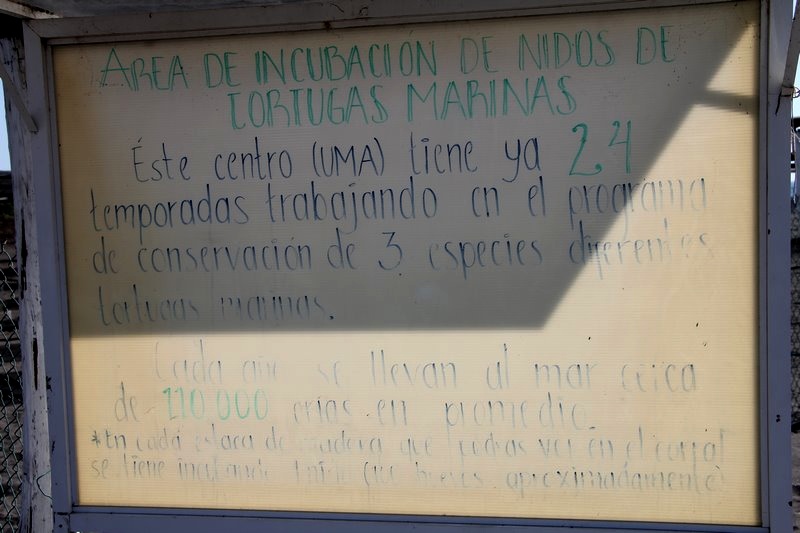 ÁREA DE INCUBACIÓN DE NIDOS DE
TORTUGAS MARINAS
Éste centro (UMA) tiene ya 24
temporadas trabajando en el programa
de conservación de 3 especies diferentes
tortugas marinas.
Cada año se llevan al mar cerca
de 110.000 crías en promedio.
*En cada estaca de madera que podras ver en el corral
se tiene incubando 1 nido aproximadamente)